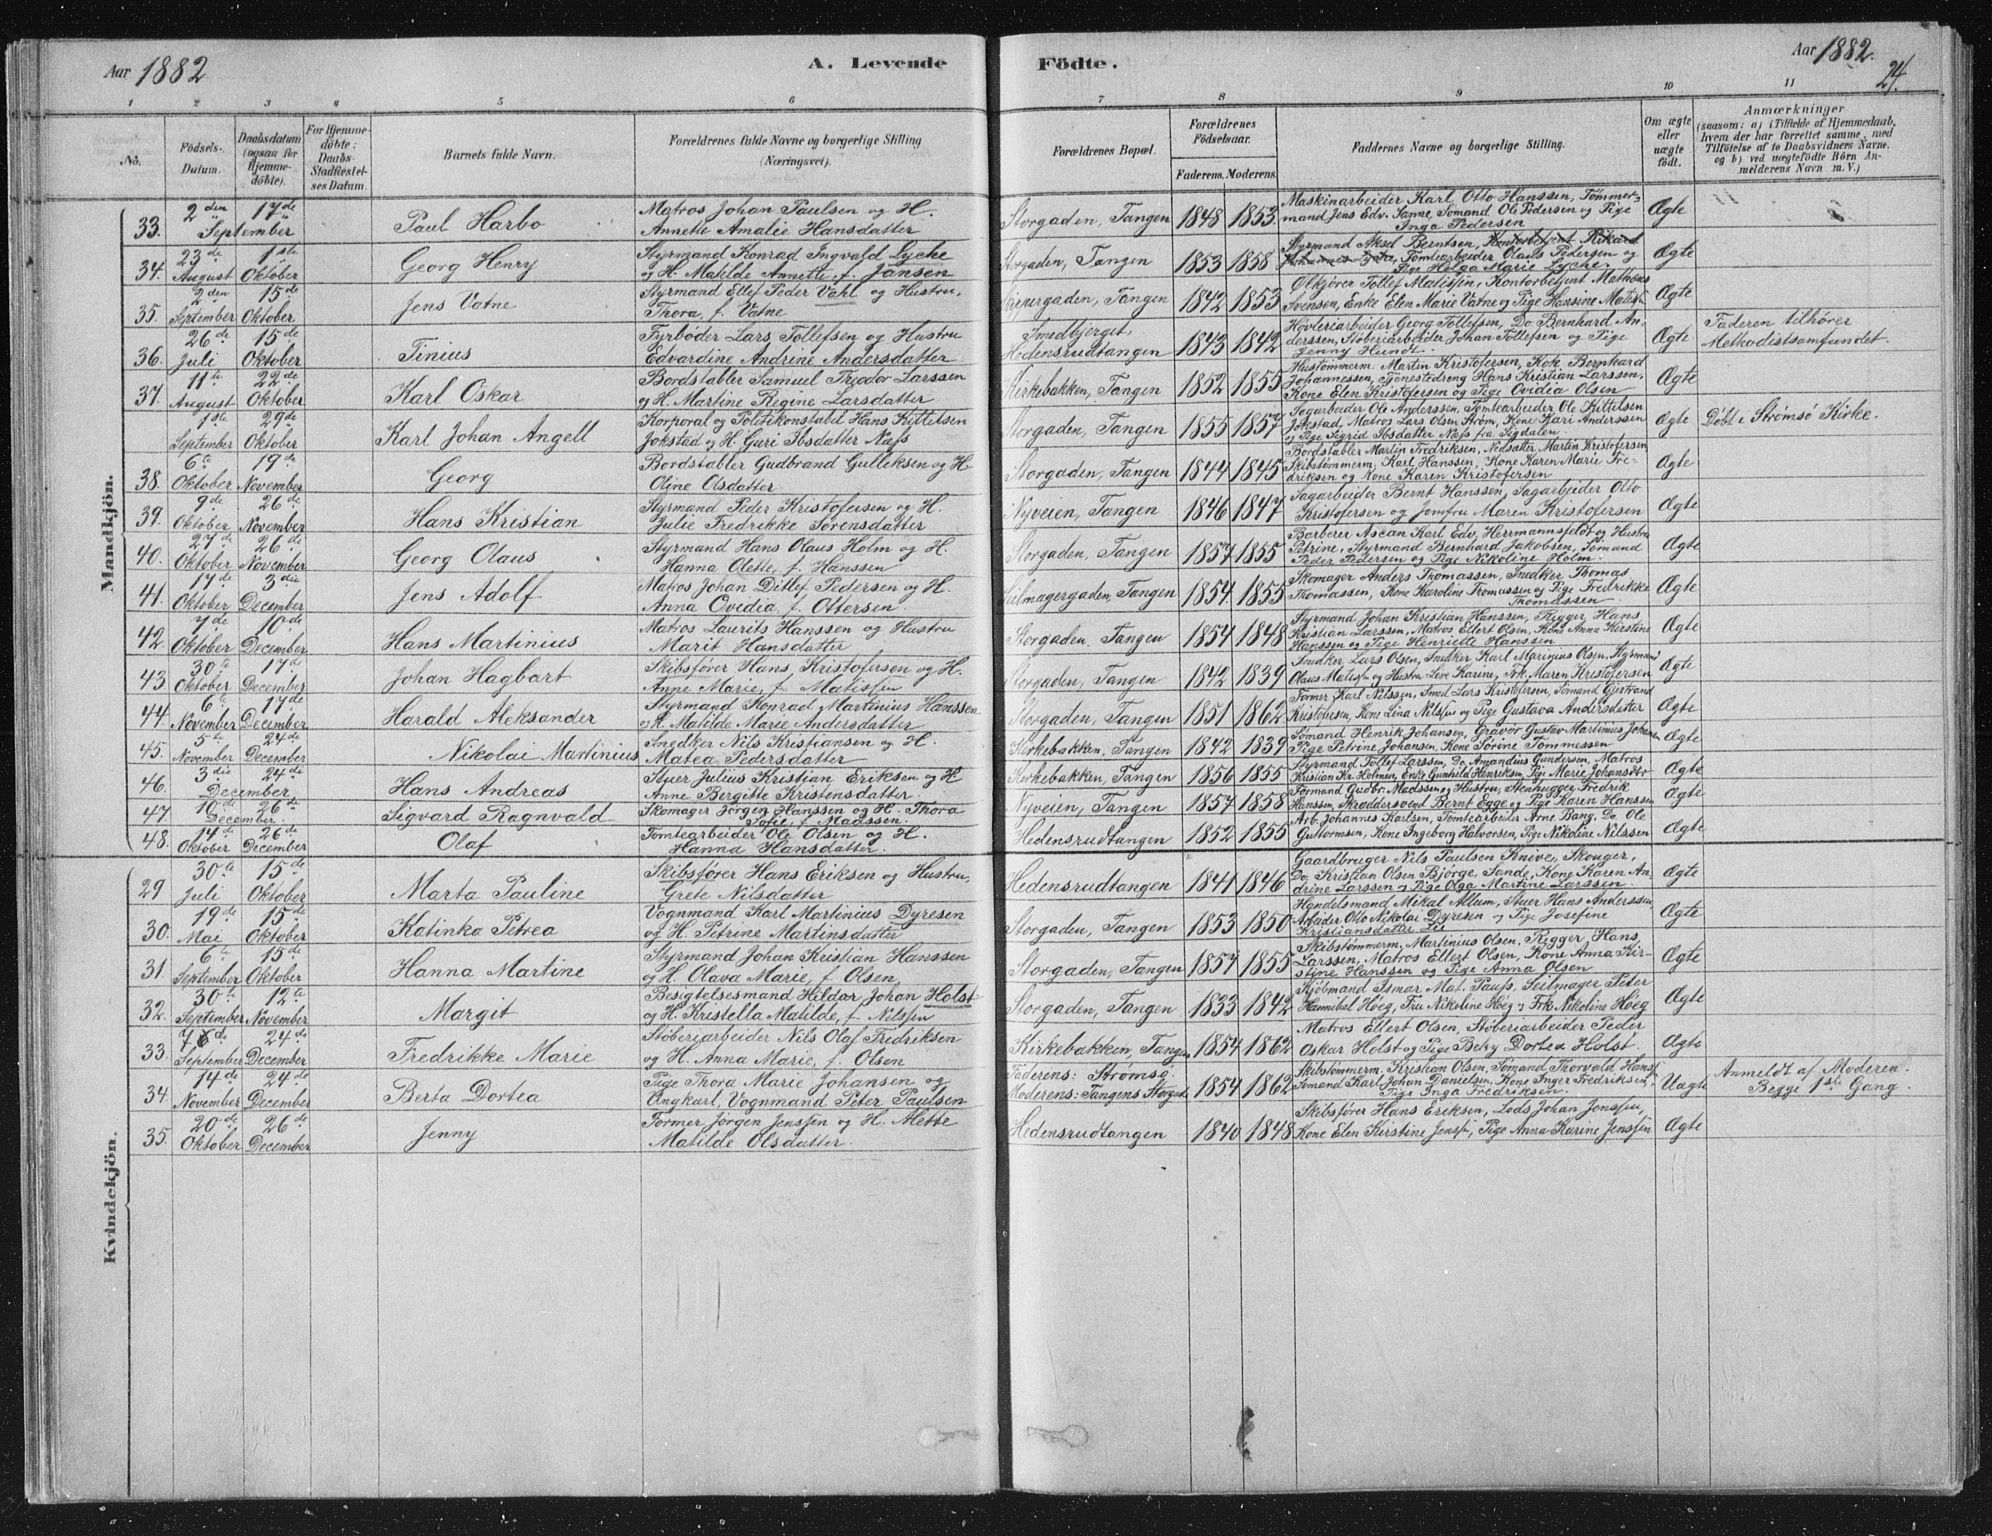 Aar 1882
A. Levende
Födte.
Aar 1882.
24.
1 2 3 6 5 6 7 8 9 10 11
No.
Födsels-
Datum.
Daabsdatum
(ogsaa for
Hjemme-
döbte).
For Hjemme-
döbte:
Daabs-
Stadfæstel-
ses Datum.
Barnets fulde Navn.
Forældrenes fulde Navne og borgerlige Stilling
(Næringsvei).
Forældrenes Bopæl.
Forældrenes
Födselsaar.
Faderens. Moderens.
Faddernes Navne og borgerlige Stilling.
Om ægte
eller
uægte
födt.
Anmærkninger
(saasom: a) i Tilfælde af Hjemmedaab,
hvem der har forrettet samme, med
Tilföielse af to Daabsvidners Navne,
og b) ved uægtefödte Börn An-
melderens Navn m. V.)
Mandkjön.
33. 2den September 17de Paul Harbo
Matros Johan Paulsen og H.
Annette Amalie Hansdatter
Storgaden, Tangen 1848 1853
Maskinarbeider Karl Otto Hanssen, Tømmer-
mand Jens Edv. Sanne, Sømand Ole Pedersen og Pige
Inga Pedersen
Ægte
34. 23de August 1ste Oktober Georg Henry
Styrmand Konrad Ingvald Lyche
og H. Matilde Annette, f. Jansen
Storgaden, Tangen 1853 1858
Styrmand Aksel Berntsen, Kontorbetjent Rikard
Tomtearbeider Olaus Pedersen og
Pige Helga Marie Lyche
Ægte
35. 2den September 15de Oktober Jens Vatne
Styrmand Ellef Peder Vahl og Hustru,
Thora, f. Vatne
Tangen 1842 1853
Ølkjører Tollef Matissen, Kontorbetjent Mathæus
Svensen, Enke Elen Marie Vatne og Pige Hansine Matis
Ægte
36. 26de Juli 15de Oktober Tinius
Fyrbøder Lars Tollefsen og Hustru
Edvardine Andrine Andersdatter
Smedbjerget,
Hedensrudtangen 1843 1842
Høvleriarbeider Georg Tollefsen, Do. Bernhard An-
derssen, Støberiarbeider Johan Tollefsen og Pige
Jenny Hundt.
Ægte
Faderen tilhører
Methodistsamfundet.
37. 11te August 22de Oktober Karl Oskar
Bordstabler Samuel Teodor Larssen
og H. Martine Regine Larsdatter
Kirkebakken, Tangen 1852 1855
Hustømmerm. Martin Kristofersen, Kok Bernhard
Johannessen, Tjenestedreng Hans Kristian Larssen,
Kone Elen Kristofersen og Pige Ovidia Olsen
Ægte
1ste September 29de Oktober Karl Johan Angell
Korporal og Politikonstabel Hans Kittelsen
Jokstad og H. Guri Ibsdatter Næss
Storgaden, Tangen 1855 1857
Sagarbeider Ole Anderssen, Tomtearbeider Ole Kittelsen
Jokstad, Matros Lars Olsen Strøm, Kone Kjari Anderssen
og Pige Sigrid Ibsdatter Næss fra Sigdalen
Ægte
Døbt i Strømsø Kirke.
38. 6te Oktober 19de November Georg
Bordstabler Gudbrand Gulleksen og H
Oline Olsdatter
Storgaden, Tangen 1844 1845
Bordstabler Martin Fredriksen, Nedsætter Martin Kristofersen,
Skibstømmerm. Karl Hanssen, Kone Karen Marie Fre-
driksen og Kone Karen Kristofersen
Ægte
39. 9de Oktober 26de November Hans Kristian
Styrmand Peder Kristofersen og H.
Julie Fredrikke Sørensdatter
Nyveien, Tangen 1846 1847
Sagarbeider Bernt Hanssen, Sagarbeider Otto
Kristofersen og Jomfru Maren Kristofersen
Ægte
40. 27de Oktober 26de November Georg Olaus
Styrmand Hans Olaus Holm og H.
Hanna Olette, f. Hanssen
Storgaden, Tangen 1857 1855
Barberer Ascan Karl Edv. Herrmannsfeldt og Hustru
Petrine, Styrmand Bernhard Jakobsen, Sømand
Peder Pedersen og Pige Nikoline Holm
Ægte
41. 17de Oktober 3die December Jens Adolf
Matros Johan Ditlef Pedersen og H.
Anna Ovidia, f. Ottersen
Seilmagergaden, Tangen 1854 1855
Skomager Anders Thomassen, Snedker Thomas
Thomassen, Kone Karoline Thomassen og Pige Fredrikke
Thomassen
Ægte
42. 7de Oktober 10de December Hans Martinius
Matros Laurits Hanssen og Hustru
Marit Hansdatter
Storgaden, Tangen 1854 1848
Styrmand Johan Kristian Hanssen, Rigger Hans
Kristian Larssen, Matros Ellert Olsen, Kone Anne Kirstine
Hanssen og Pige Henriette Hanssen
Ægte
43. 30te Oktober 17de December Johan Hagbart
Skibsfører Hans Kristofersen og H.
Anne Marie, f. Matissen
Storgaden, Tangen 1842 1839
Snedker Lars Olsen, Snedker Karl Marinius Olsen, Styrmand
Olaus Matissen og Hustru Live Karine, Frk. Maren Kristofersen
Ægte
44. 6te November 17de December Harald Aleksander
Styrmand Konrad Martinius Hanssen
og H. Matilde Marie Andersdatter
Storgaden, Tangen 1851 1862
Former Karl Nilssen, Smed Lars Kristofersen, Sømand Gjertrand
Kristofersen, Kone Lina Nilssen og Pige Gustava Andersdatter
Ægte
45. 5te November 24de December Nikolai Martinius
Snedker Nils Kristiansen og H.
Matea Pedersdatter
Kirkebakken, Tangen 1842 1839
Sømand Henrik Johansen, Gravør Gustav Martinius Johansen
Pige Petrine Johansen, Kone Sørine Tommessen
Ægte
46. 3die December 24de Hans Andreas
Stuer Julius Kristian Eriksen og H
Anne Bergitte Kristensdatter
Kirkebakken, Tangen 1856 1855
Styrmand Tollef Larssen, Do. Amandius Gundersen, Matros
Kristian Kr. Holmen, Enke Gunhild Henriksen, Pige Marie Johansdtr
Ægte
47. 10de December 26de Sigvard Ragnvald
Skomager Jørgen Hanssen og H. Thora
Sofie, f. Madssen.
Nyveien, Tangen 1857 1858
Formand Gudbr. Madssen og Hustru, Stenhugger Fredrik
Hanssen, Skræddersvend Bernt Egge og Pige Karen Hanssen
Ægte
48. 14de Oktober 26de December Olaf
Tomtearbeider Ole Olsen og H.
Hanna Hansdatter.
Hedensrudtangen 1852 1855
Arb. Johannes Karlsen, Tomtearbeider Arne Bang, Do. Ole
Guttormsen, Kone Ingeborg Halvorsen, Pige Nikoline Nilssen
Ægte
Kvindekjön.
29 30te Juli 15de Oktober Marta Pauline
Skibsfører Hans Eriksen og Hustru,
Grete Nilsdatter
Hedensrudtangen 1841 1846
Gaardbruger Nils Paulsen Knive, Skouger,
Do. Kristian Olsen Bjørge, Sande, Kone Karen An-
drine Larssen og Pige Olga Martine Larssen
Ægte
30. 19de Mai 15de Oktober Katinka Petrea
Vognmand Karl Martinius Dyresen
og H. Petrine Martinsdatter
Storgaden, Tangen 1853 1850
Handelsmand Mikal Allum, Stuer Hans Anderssen,
Arbeider Otto Nikolai Dyresen og Pige Josefine
Kristiansdatter Lie
Ægte
31. 6te September 15de Oktober Hanna Martine
Styrmand Johan Kristian Hanssen
og H. Olava Marie, f. Olsen
Storgaden, Tangen 1857 1855
Skibstømmerm. Martinius Olsen, Rigger Hans
Larssen, Matros Ellert Olsen, Kone Anna Kir-
stine Hanssen og Pige Anna Olsen
Ægte
32. 30te September 12te November Margit
Besigtelsesmand Hildor Johan Holst
og H. Kristella Matilde, f. Nilssen
Storgaden, Tangen 1833 1842
Kjøbmand Ismar Mat. Pauss, Seilmager Peter
Hannibel Høeg, Fru Nikoline Høeg og Frk. Nikoline Høeg
Ægte
33. 7de September 24de December Fredrikke Marie
Støberiarbeider Nils Olaf Fredriksen
og H. Anna Marie, f. Olsen
Kirkebakken, Tangen 1854 1862
Matros Ellert Olsen, Støberiarbeider Peder
Oskar Holst og Pige Betzy Dortea Holst
Ægte
34. 14de November 24de December Berta Dortea
Pige Thora Marie Johansen og
Ungkarl, Vognmand Peter Paulsen
Faderens: Strømsø
Moderens: Tangens Storgade 1854 1862
Skibstømmerm. Kristian Olsen, Sømand Thorvald Hans
Sømand Karl Johan Danielsen, Kone Inger Fredriksen,
Pige Inga Fredriksen
Uægte
Anmeldt af Moderen.
Begge 1ste Gang.
35. 20de Oktober 26de December Jenny
Former Jørgen Jenssen og H. Alette
Matilde Olsdatter
Hedensrudtangen 1840 1848
Skibsfører Hans Eriksen, Lods Johan Jenssen,
Kone Elen Kirstine Jenssen, Pige Anna Karine Jenssen
Ægte